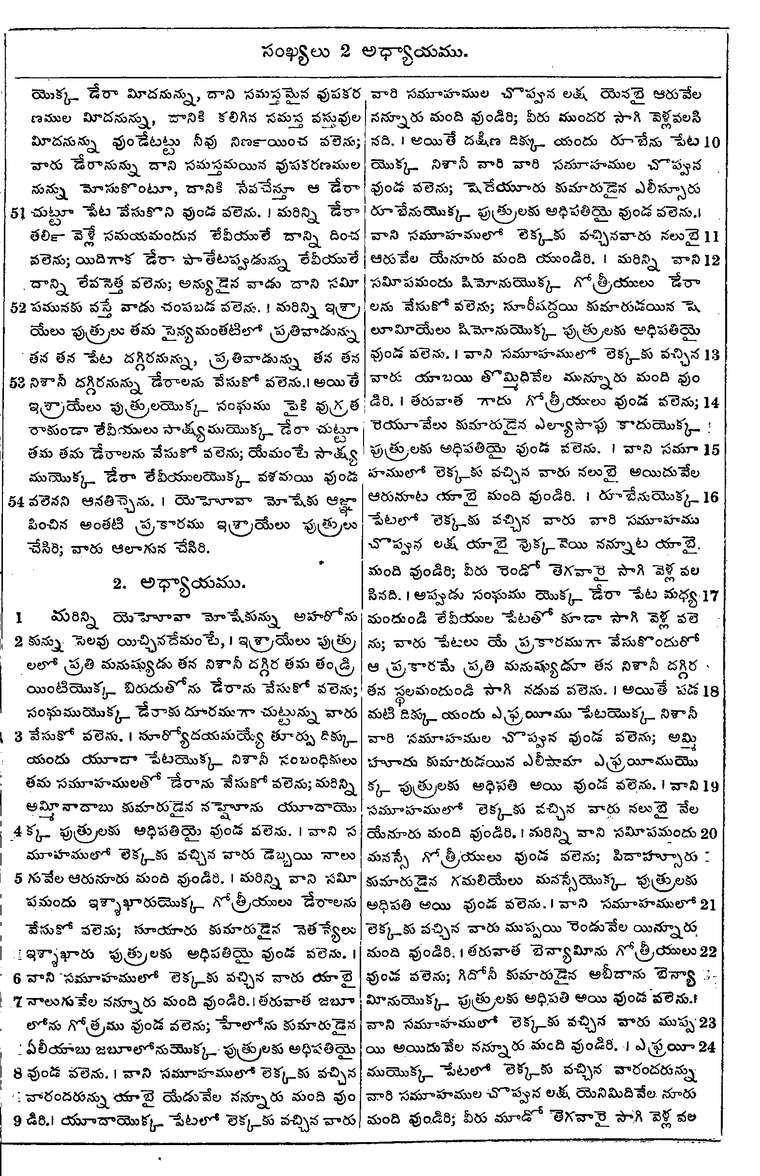 సంఖ్యలు 2 అధ్యాయము.
యొక్క డేరా మీదనున్ను, దాని సమస్తమైన వుపకర
ణముల మీదనున్ను, దానికి కలిగిన సమస్త వస్తువుల
మీదనున్ను వుండేటట్టు నీవు నిణ౯యించ వలెను;
వారు డేరానున్ను దాని సమస్తమయిన వుపకరణముల
నున్ను మోసుకొంటూ, దానికి సేవచేస్తూ ఆ డేరా
51 చుట్టూ పేట వేసుకొని వుండ వలెను. । మరిన్ని డేరా
తలి౯ వెళ్లే సమయమందున లేవీయులే దాన్ని దించ
వలెను; యిదిగాక డేరా పాతేటప్పుడున్ను లేవీయులే
దాన్ని లేవనెత్త వలెను; అన్యుడైన వాడు దాని సమీ
52 పమునకు వస్తే వాడు చంపబడ వలెను. । మరిన్ని ఇశ్రా
యేలు పుత్రులు తమ సైన్యమంతటిలో ప్రతివాడున్ను
తన తన పేట దగ్గిరనున్ను, ప్రతివాడున్ను తన తన
53 నిశానీ దగ్గిరనున్ను డేరాలను వేసుకో వలెను.। అయితే
ఇశ్రాయేలు పుత్రులయొక్క సంఘము పైకి వుగ్రత
రాకుండా లేవీయులు సాక్ష్యముయొక్క డేరా చుట్టూ
తమ తమ డేరాలను వేసుకో వలెను; యేమంటే సాక్ష్య
ముయొక్క డేరా లేవీయులయొక్క వశమయి వుండ
54 వలెనని ఆనతిచ్చెను. । యెహోవా మోషేకు ఆజ్ఞా
పించిన అంతటి ప్రకారము ఇశ్రాయేలు పుత్రులు
చేసిరి; వారు ఆలాగున చేసిరి.
2. అధ్యాయము.
1 మరిన్ని యెహోవా మోషేకున్ను అహరోను
2 కున్ను సెలవు యిచ్చినదేమంటే, । ఇశ్రాయేలు పుత్రు
లలో ప్రతి మనుష్యుడు తన నిశానీ దగ్గిర తమ తండ్రి
యింటియొక్క బిరుదుతోను డేరాను వేసుకో వలెను;
సంఘముయొక్క డేరాకు దూరముగా చుట్టున్ను వారు
3 వేసుకో వలెను. । సూర్యోదయమయ్యే తూర్పు దిక్కు
యందు యూదా పేటయొక్క నిశానీ సంబంధికులు
తమ సమూహములతో డేరాను వేసుకో వలెను; మరిన్ని
అమ్మినాదాబు కుమారుడైన నహ్షోను యూదాయొ
4 క్క పుత్రులకు అధిపతియై వుండ వలెను. । వాని స
మూహములో లెక్కకు వచ్చిన వారు డెబ్బయి నాలు
5 గువేల ఆరునూరు మంది వుండిరి. । మరిన్ని వాని సమీ
పమందు ఇశ్శాఖారుయొక్క గోత్రీయులు డేరాలను
వేసుకో వలెను; సూయారు కుమారుడైన నెతన్యేలు
ఇశ్శాఖారు పుత్రులకు అధిపతియై వుండ వలెను. ।
6 వాని సమూహములో లెక్కకు వచ్చిన వారు యాభై
7 నాలుగువేల నన్నూరు మంది వుండిరి.। తరువాత జబూ
లోను గోత్రము వుండ వలెను; హేలోను కుమారుడైన
ఏలీయాబు జబూలోనుయొక్క పుత్రులకు అధిపతియై
8 వుండ వలెను. । వాని సమూహములో లెక్కకు వచ్చిన
వారందరున్ను యాభై యేడువేల నన్నూరు మంది వుం
9 డిరి.। యూదాయొక్క పేటలో లెక్కకు వచ్చిన వారు
వారి సమూహముల చొప్పున లక్ష యెనభై ఆరువేల
నన్నూరు మంది వుండిరి; వీరు ముందర సాగి వెళ్లవలసి
నది. । అయితే దక్షిణ దిక్కు యందు రూబేను పేట 10
యొక్క నిశానీ వారి వారి సమూహముల చొప్పున
వుండ వలెను; షెదేయూరు కుమారుడైన ఎలీస్సూరు
రూబేనుయొక్క పుత్రులకు అధిపతియై వుండ వలెను.।
వాని సమూహములో లెక్కకు వచ్చినవారు నలుభై 11
ఆరువేల యేనూరు మంది యుండిరి. । మరిన్ని వాని 12
సమీపమందు షిమోనుయొక్క గోత్రీయులు డేరా
లను వేసుకో వలెను; సూరీషద్దయి కుమారుడయిన షె
లూమీయేలు షిమోనుయొక్క పుత్రులకు అధిపతియై
వుండ వలెను. । వాని సమూహములో లెక్కకు వచ్చిన 13
వారు యాబయి తొమ్మిదివేల మున్నూరు మంది వుం
డిరి. । తరువాత గాదు గోత్రీయులు వుండ వలెను; 14
రెయూవేలు కుమారుడైన ఎల్యాసాఫు గాదుయొక్క
పుత్రులకు అధిపతియై వుండ వలెను. । వాని సమూ 15
హములో లెక్కకు వచ్చిన వారు నలుభై అయిదువేల
ఆరునూట యాభై మంది వుండిరి. । రూబేనుయొక్క 16
పేటలో లెక్కకు వచ్చిన వారు వారి సమూహము
చొప్పున లక్ష యాభై వొక్కవెయి నన్నూట యాభై
మంది వుండిరి; వీరు రెండో తెగవారై సాగి వెళ్ల వల
సినది. । అప్పుడు సంఘము యొక్క డేరా పేట మధ్య 17
మందుండి లేవీయుల పేటతో కూడా సాగి వెళ్ల వలె
ను; వారు పేటలు యే ప్రకారముగా వేసుకొందురో
ఆ ప్రకారమే ప్రతి మనుష్యుడూ తన నిశానీ దగ్గిర
తన స్థలమందుండి సాగి నడువ వలెను. । అయితే పడ 18
మటి దిక్కు యందు ఎఫ్రయీము పేటయొక్క నిశానీ
వారి సమూహముల చొప్పున వుండ వలెను; అమ్మి
హూదు కుమారుడయిన ఎలీషామా ఎఫ్రయీముయొ
క్క పుత్రులకు అధిపతి అయి వుండ వలెను. । వాని 19
సమూహములో లెక్కకు వచ్చిన వారు నలుభై వేల
యేనూరు మంది వుండిరి. । మరిన్ని వాని సమీపమందు 20
మనస్సే గోత్రీయులు వుండ వలెను; పిదాహ్సూరు
కుమారుడైన గమలియేలు మనస్సేయొక్క పుత్రులకు
అధిపతి అయి వుండ వలెను. । వాని సమూహములో 21
లెక్కకు వచ్చిన వారు ముప్పయి రెండువేల యిన్నూరు
మంది వుండిరి. । తరువాత బెన్యామీను గోత్రీయులు 22
వుండ వలెను; గిదోనీ కుమారుడైన అబీదాను బెన్యా
మీనుయొక్క పుత్రులకు అధిపతి అయి వుండ వలెను.।
వాని సమూహములో లెక్కకు వచ్చిన వారు ముప్ప 23
యి అయిదువేల నన్నూరు మంది వుండిరి. । ఎఫ్రయీ 24
ముయొక్క పేటలో లెక్కకు వచ్చిన వారందరున్ను
వారి సమూహముల చొప్పున లక్ష యెనిమిదివేల నూరు
మంది వుండిరి; వీరు మూడో తెగవారై సాగి వెళ్ల వల